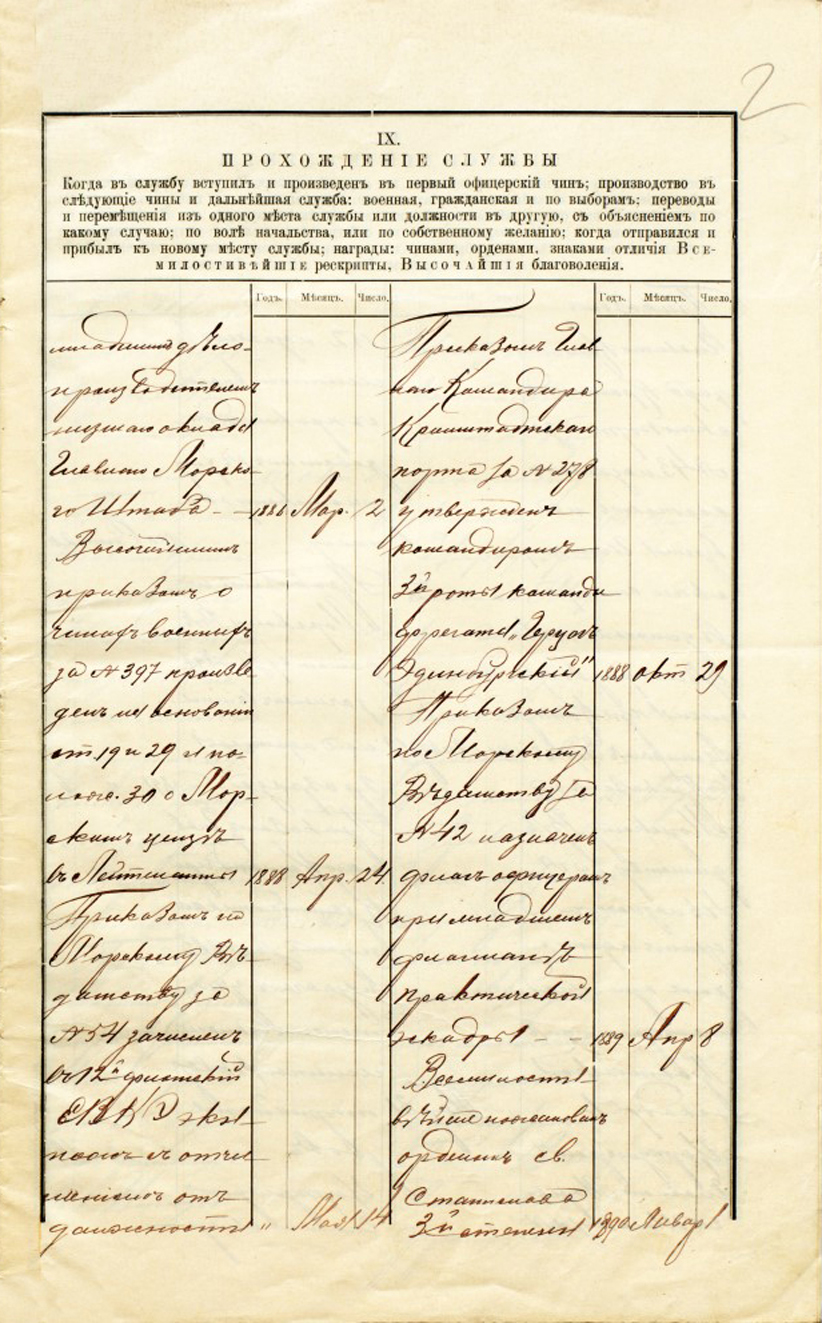 2
IX.
ПРОХОЖДЕНІЕ СЛУЖБЫ
Когда въ службу вступилъ и произведенъ въ первый офицерскій чинъ; производство въ
слѣдующіе чины и дальнѣйшая служба: военная, гражданская и по выборамъ; переводы
и перемѣщенія изъ одного мѣста службы или должности въ другую, съ объясненіемъ по
какому случаю; по волѣ начальства, или по собственному желанію; когда отправился и
прибылъ къ новому мѣсту службы; награды: чинами, орденами, знаками отличія Все-
милостивѣйшіе рескрипты, Высочайшія благоволенія.
Годъ. Мѣсяцъ. Число.
младшимъ дѣло-
производителемъ
низшаго оклада
Главнаго Морска-
го Штаба - - 1886 Мар. 2
Высочайшимъ
приказомъ о
чинахъ военныхъ
за № 397 произве
денъ на основаніи
ст. 19 и 29 и по-
лож. 30 о Мор-
скомъ цензѣ
въ Лейтенанты 1888 Апр. 24
Приказомъ по
Морскому Вѣ-
домству за
№ 54 зачисленъ
въ 12й флотскій
ЕВКД эки-
пажъ съ отчи
сленіемъ отъ
должности " Мая 14
Годъ. Мѣсяцъ. Число.
Приказомъ Глав
наго Командира
Кронштадтскаго
порта за № 278
утвержденъ
командиромъ
3й роты команды
фрегата „Герцогъ
Эдинбургскій" 1888 окт 29
Приказомъ
по Морскому
Вѣдомству за
№ 42 назначенъ
флагъ офицеромъ
при младшемъ
флагманѣ
практической
эскадры - - 1889 Апр 8
Всемилости-
вѣйше пожалованъ
орденомъ св.
Станислава
3й степени 1890 Январ 1